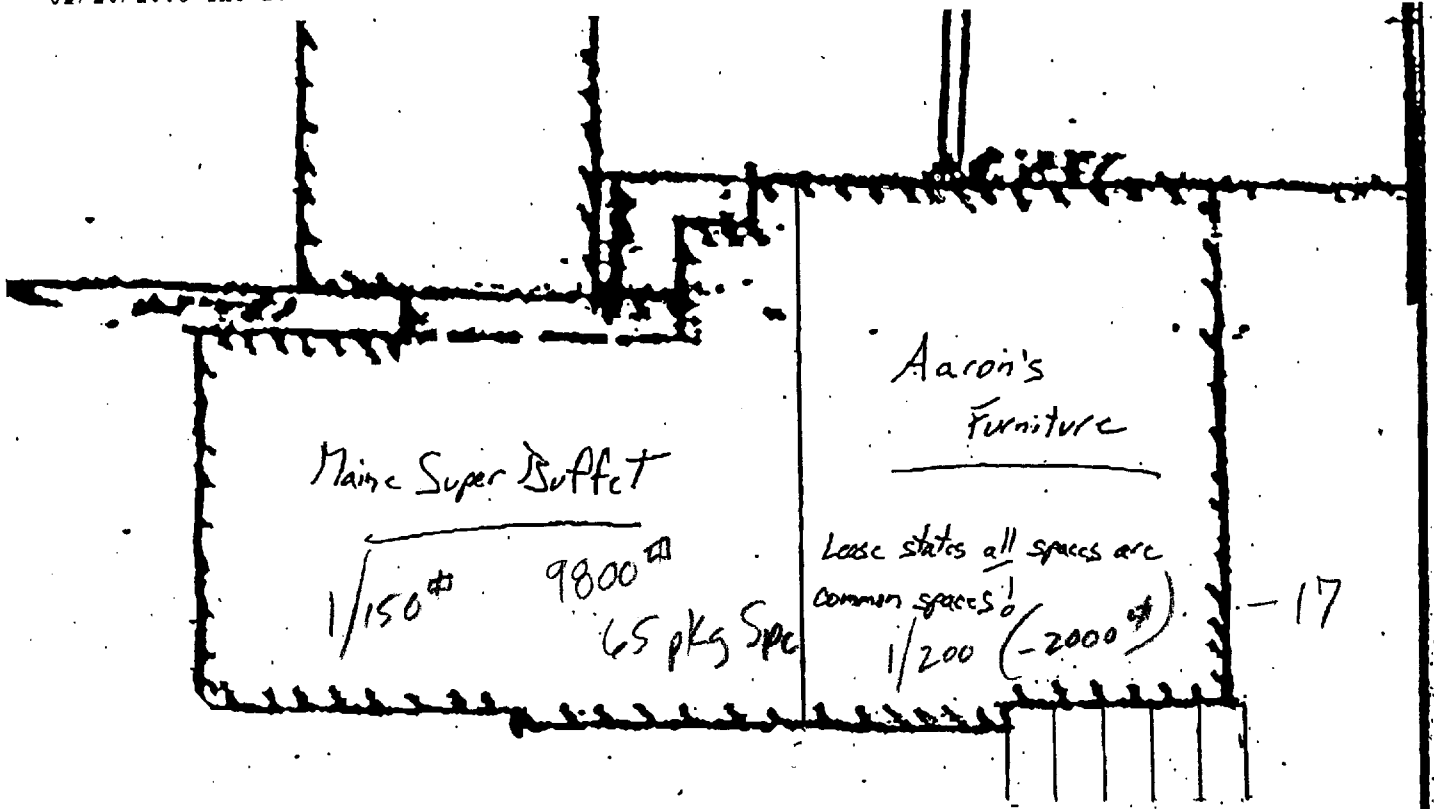 Maine Super Buffet
1/150
9800
65 pkg Spc
Aaron's
Furniture
Lease states all spaces are
common spaces!
1/200 (-2000)
- 17